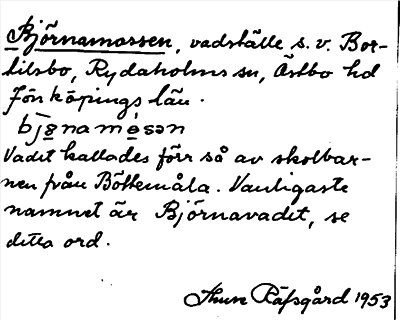 Björnamossen, vadställe s.v. Bor-
tilsbo, Rydaholms sn, Östbo hd
Jönköpings län.
bjönamósən
Vadet kallades förr så av skolbar-
nen från Böttemåla. Vanligaste
namnet är Björnavadet, se
detta ord.
Thure Räfsgård 1953